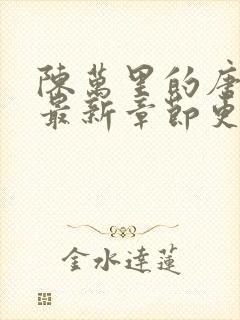 陳萬里的唐
最新章節更
金水達蓮